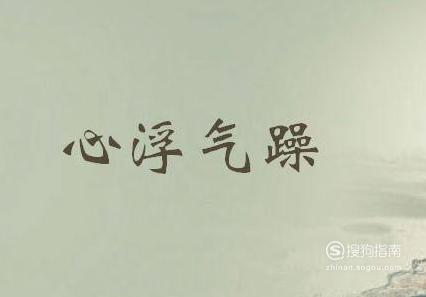 心浮气躁
S 搜狗指南
zhinan.sogou.com